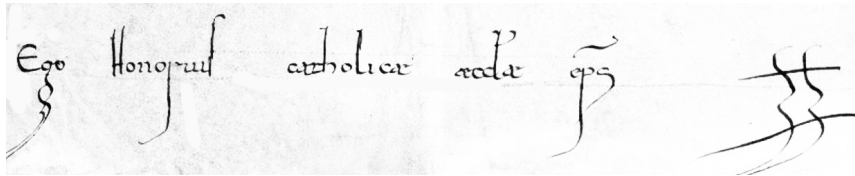 Ego Honoriuſ catholicæ æccl̄æ ep̄s